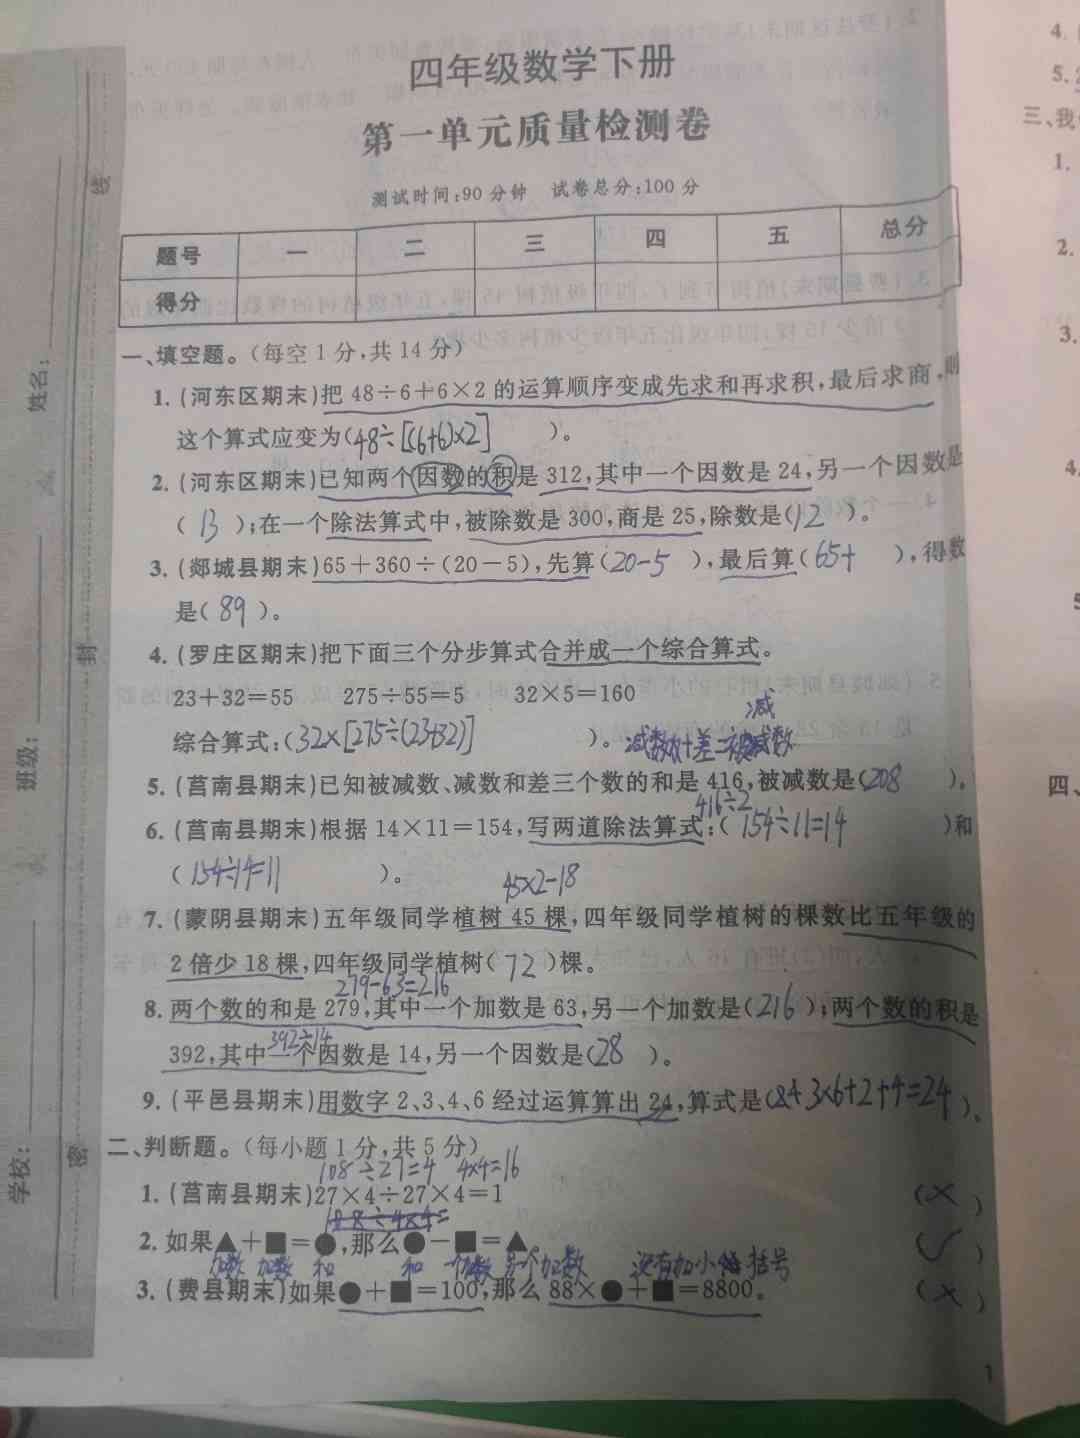 四年级数学下册
第一单元质量检测卷
测试时间:90分钟 试卷总分:100分
题号 一 二 三 四 五 总分
得分
一、填空题。(每空1分,共14分)
1.(河东区期末)把48÷6+6×2的运算顺序变成先求和再求积,最后求商,则
这个算式应变为(48÷[(6+6)×2])。
2.(河东区期末)已知两个因数的积是312,其中一个因数是24,另一个因数是
(13);在一个除法算式中,被除数是300,商是25,除数是(12)。
3.(郯城县期末)65+360÷(20-5),先算(20-5),最后算(65+),得数
是(89)。
4.(罗庄区期末)把下面三个分步算式合并成一个综合算式。
23+32=55 275÷55=5 32×5=160
减
综合算式:(32×[275÷(23+32)])。减数+差=被减数
5.(莒南县期末)已知被减数、减数和差三个数的和是416,被减数是(208)。
416÷2
6.(莒南县期末)根据14×11=154,写两道除法算式:(154÷11=14)和
(154÷14=11)。
45×2-18
7.(蒙阴县期末)五年级同学植树45棵,四年级同学植树的棵数比五年级的
2倍少18棵,四年级同学植树(72)棵。
279-63=216
8.两个数的和是279,其中一个加数是63,另一个加数是(216);两个数的积是
392÷14
392,其中一个因数是14,另一个因数是(28)。
9.(平邑县期末)用数字2、3、4、6经过运算算出24,算式是(3×6+2+4=24)。
二、判断题。(每小题1分,共5分)
108÷27=4 4×4=16
1.(莒南县期末)27×4÷27×4=1 (×)
2.如果▲+■=●,那么●-■=▲。 (✓)
加数 加数 和 和 一个加数 另一个加数 没有加小括号
3.(费县期末)如果●+■=100,那么88×●+■=8800。 (×)
1
姓名:
班级:
学校:
线
封
密
4.
5.
三、我
1.
2.
3.
4.
5
四、